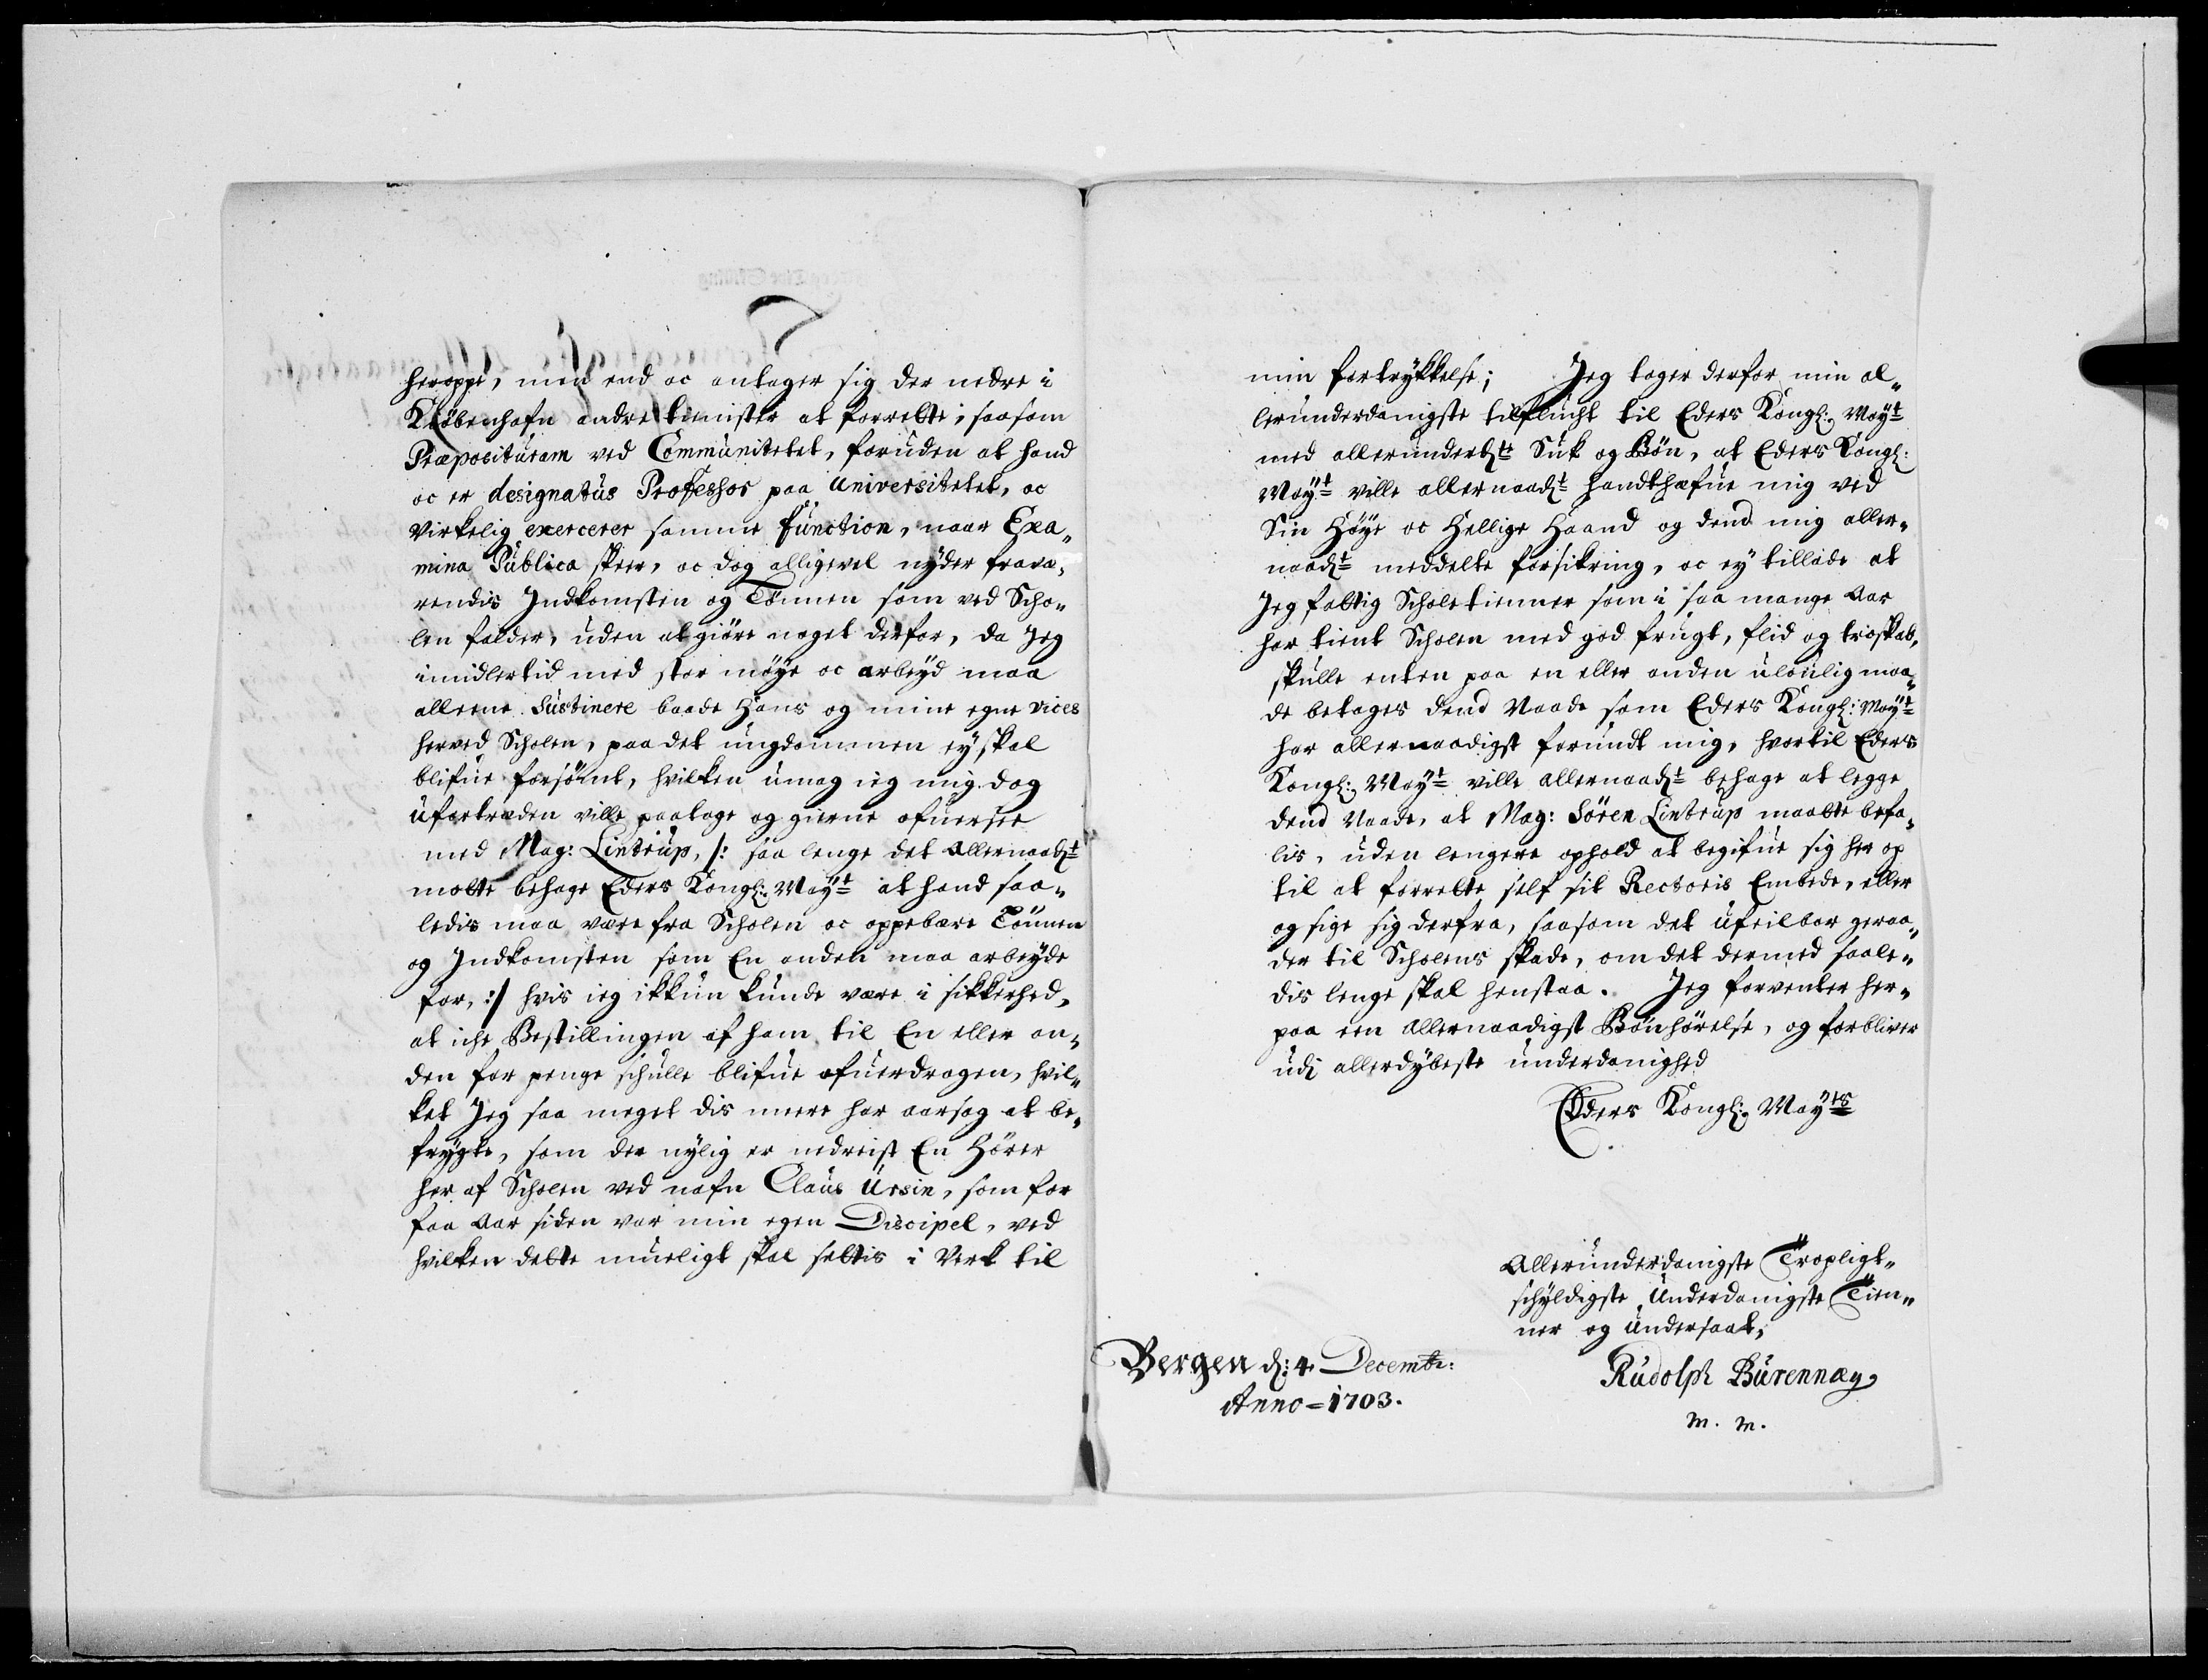 heroppe, men end oc antager sig der nedre i
Kiöbenhafn andre tienister at forrette, saasom
Præpositúram ved Commúnitetet, forúden at hand
oc er designatús Professor paa Universitetet, oc
virkelig exercerer samme fúnction, naar Exa„
mina Pública skeer, oc dog alligevel nyder fravæ„
rendis Indkomsten og Lönnen som ved Scho„
len falder, úden at giöre noget derfor, da Jeg
imidlertid med stor möye oc arbeyd maa
alleene sústinere baade Hans og mine egne vices
herved Scholen, paa det úngdommen ey skal
blifúe forsömt, hvilken úmag ieg mig dog
úfortröden ville paatage og gierne ofúersee
med Mag: Lintrúp, /: saa lenge det allernaadt
motte behage Eders Kongl: Mayt at hand saa„
ledis maa være fra Scholen oc oppebære Lönnen
og Indkomsten som En anden maa arbeyde
for, :/ hvis ieg ikkún kúnde være i sikkerhed,
at iche Bestillingen af ham til En eller an„
den for penge schúlle blifúe ofúerdragen, hvil„
ket Jeg saa meget dis meere har aarsag at be„
frygte, som der nylig er nedreist En Hörer
her af Scholen ved nafn Claús Úrsin, som for
faa Aar siden var min egen Discipel, ved
hvilken dette múeligt skal settis i Verk til
min fortrykkelse; Jeg tager derfor min al„
lerúnderdanigste tilflúcht til Eders Kongl: Mayt
med allerúnderdt Súk og Bön, at Eders Kongl:
Mayt ville allernaadt handthæfúe mig ved
Sin Höye oc Hellige Haand og dend mig aller„
naadt meddelte forsikring, oc ey tillade at
Jeg fattig Scholetienner som i saa mange Aar
har tient Scholen med god frúgt, flid og troskab,
skúlle enten paa en eller anden úlovlig maa„
de betages dend Naade som Eders Kongl: Mayt
har allernaadigst forúndt mig, hvortil Eders
Kongl: Mayt ville allernaadt behage at legge
dend Naade, at Mag: Sören Lintrúp maatte befa„
lis, úden lengere ophold at begifúe sig her op
til at forrette self sit Rectoris Embede, eller
og sige sig derfra, saasom det úfeilbar geraa„
der til Scholens skade, om det dermed saale„
dis lenge skal henstaa. Jeg forventer her„
paa een allernaadigst Bönhörelse, og forbliver
údi allerdybeste únderdanighed
Eders Kongl: Mayts
Allerúnderdanigste Tropligt„
schyldigste Únderdanigste Tien„
ner og Úndersaat,
Bergen d: 4 Decembr:
Anno = 1703.
Rúdolph Búrennæy
m. m.